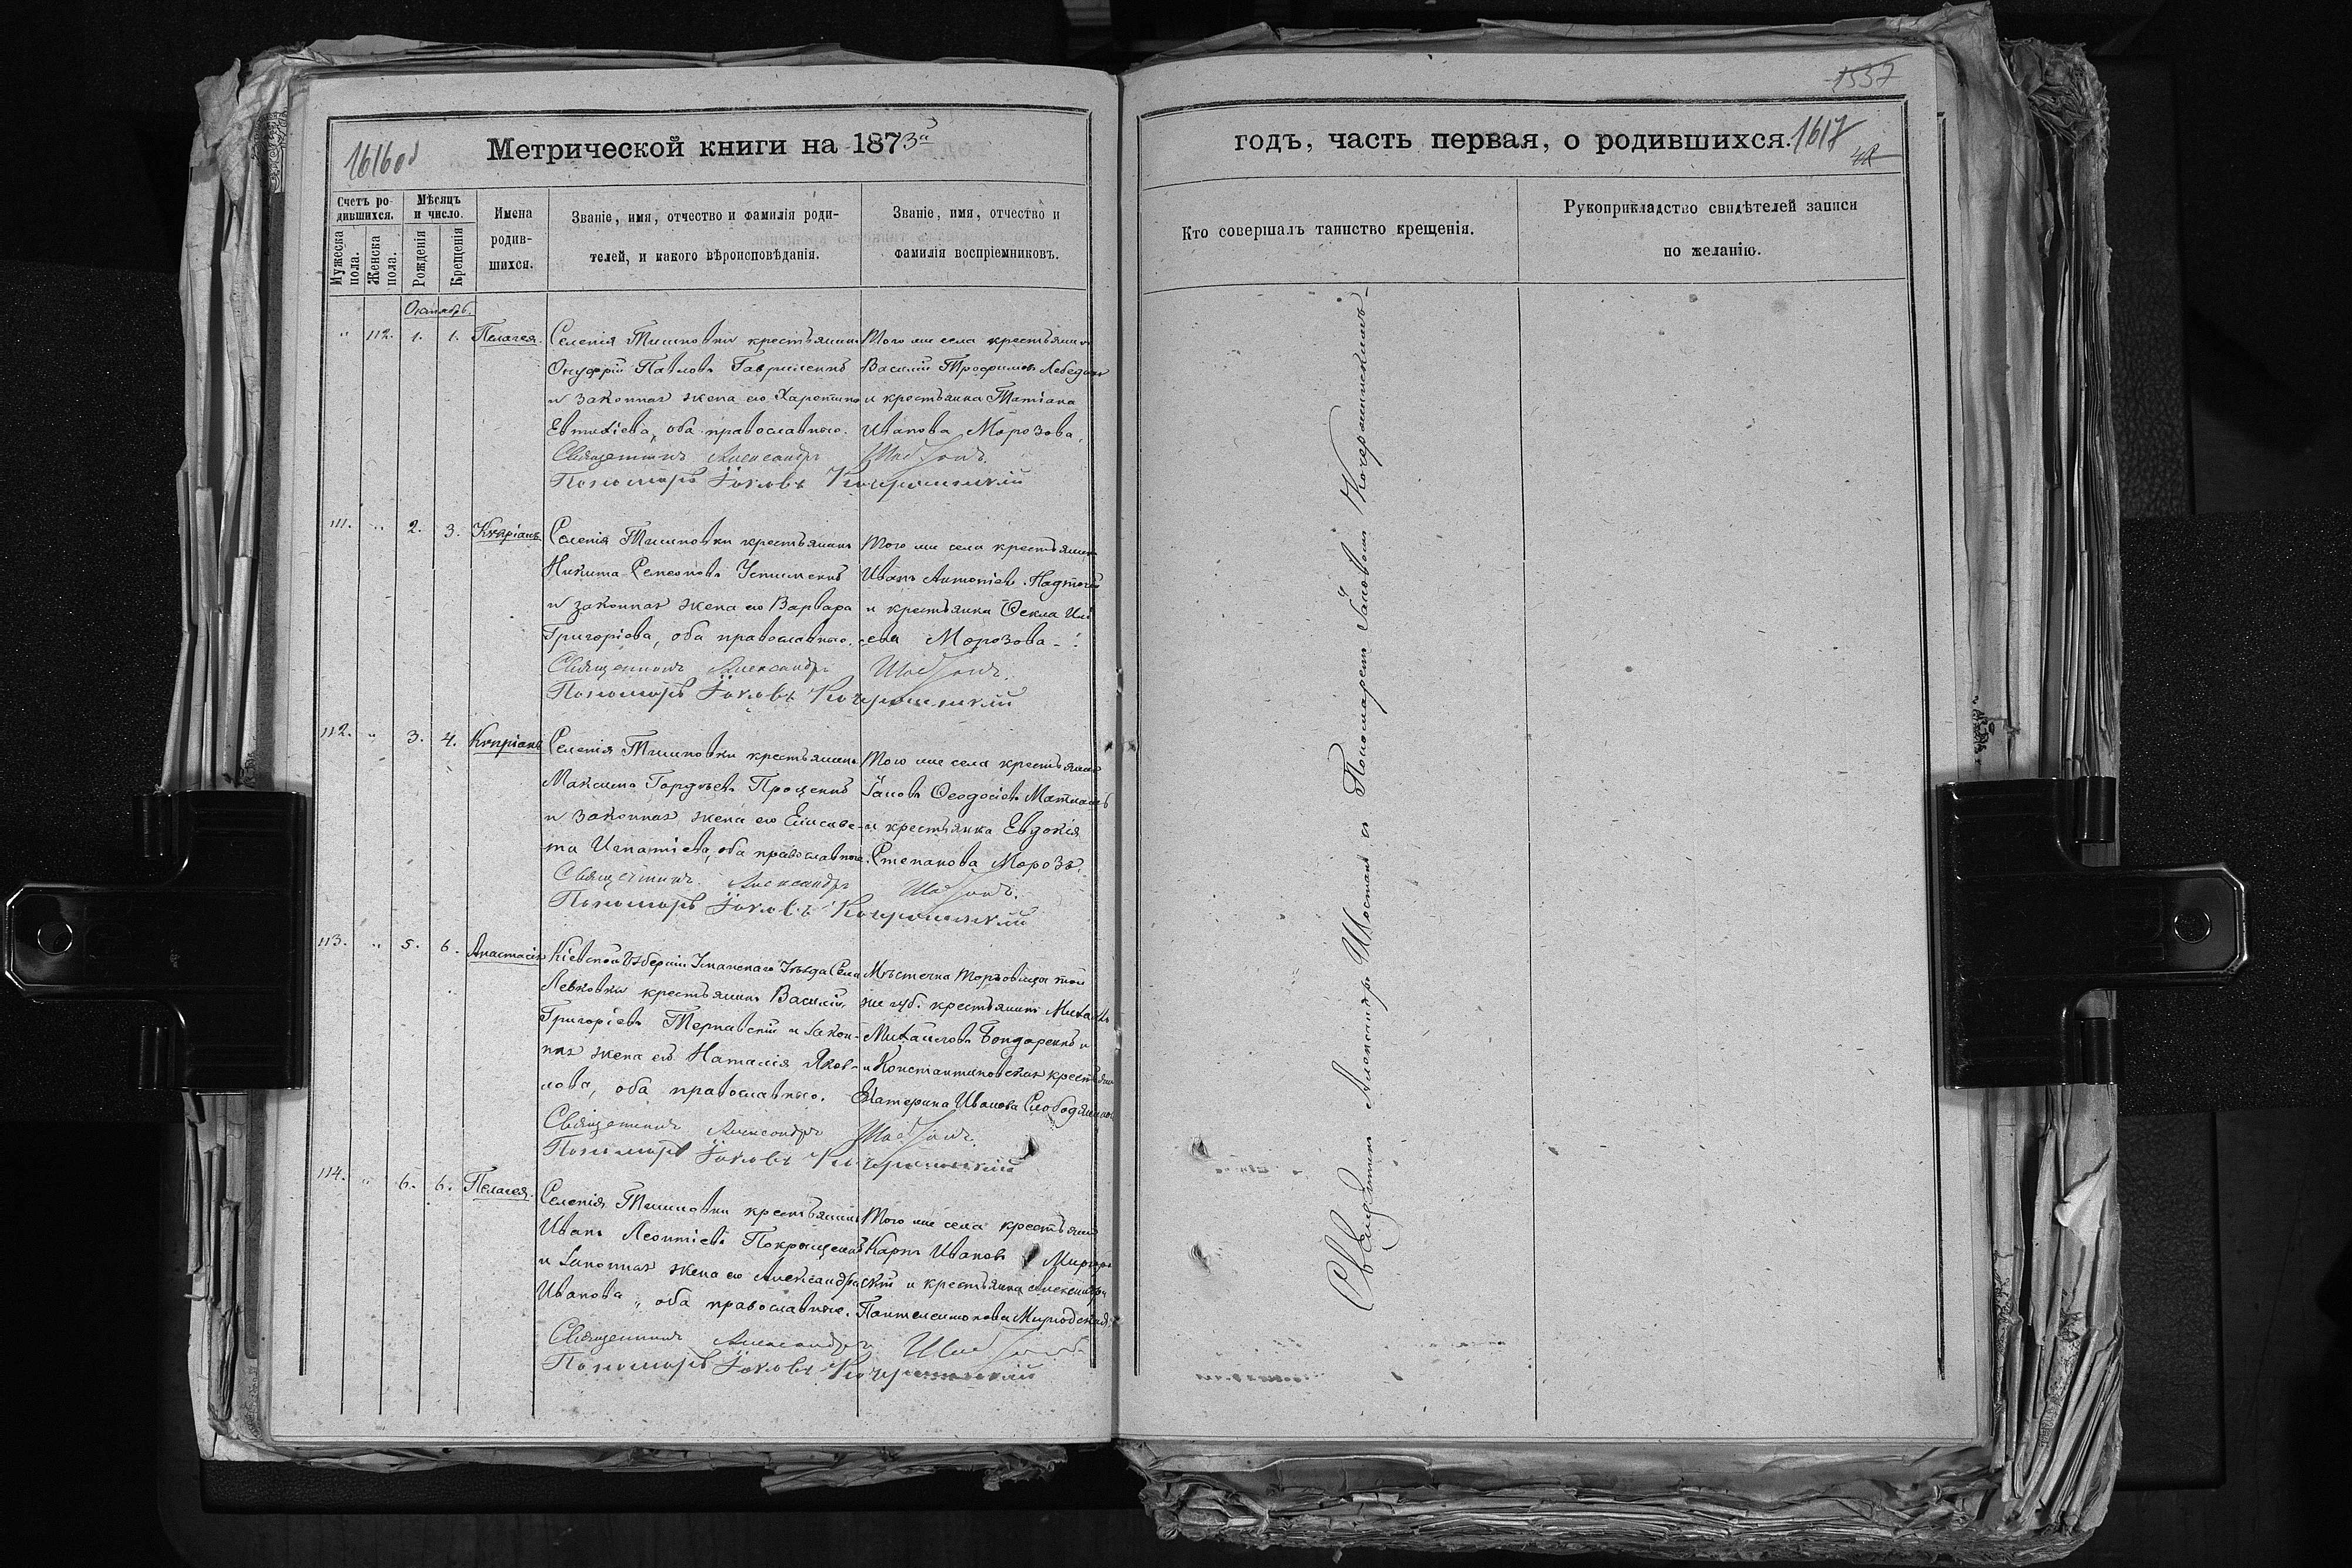 1616об
Метрической книги на 1873й
Счетъ ро-
дившихся.
Мѣсяцъ
и число.
Мужеска
пола.
Женска
пола.
Рожденія
Крещенія
Имена
родив-
шихся.
Званіе, имя, отчество и фамилія роди-
телей, и какого вѣроисповѣданія.
Званіе, имя, отчество и
фамилія воспріемниковъ.
Октябрь.
" 112. 1. 1. Пелагея.
Селенія Тишковки крестьянинъ
Онуфрій Павловъ Гавриленко
и законная жена его Харитина
Евтихіева, оба православнаго.
Того же села крестьянинъ
Василій Трофимовъ Лебединъ
и крестьянка Татіана
Иванова Морозова.
Священникъ Александръ Шостакъ.
Пономарь Іаковъ Кочержинскій
111. " 2. 3. Кѵпріанъ
Селенія Тишковки крестьянинъ
Никита Семеоновъ Устименко
и законная жена его Варвара
Григоріева, оба православнаго.
Того же села крестьянинъ
Иванъ Антоніевъ
и крестьянка Ѳекла Илі-
ева Морозова
Священникъ Александръ Шостакъ.
Пономарь Іаковъ Кочержинскій
112. " 3. 4. Кѵпріанъ
Селенія Тишковки крестьянинъ
Максимъ Гордѣевъ Проценко
и законная жена его Елисаве-
та Игнатіева, оба православнаго.
Того же села крестьянинъ
Іаковъ Ѳеодосіевъ
и крестьянка Евдокія
Степанова Морозъ.
Священникъ Александръ Шостакъ.
Пономарь Іаковъ Кочержинскій
113. " 5. 6. Анастасія
Кіевской Губерніи Уманскаго Уѣзда Села
Левковки крестьянинъ Василій
Григоріевъ Тернавскій и закон-
ная жена его Наталія Яков-
лова, оба православнаго.
Мѣстечка Торговица той
же губ. крестьянинъ Михаилъ
Михаиловъ Бондаренко и
и Константиновская крестьянка
Екатерина Иванова
Священникъ Александръ Шостакъ.
Пономарь Іаковъ Кочержинскій
114. " 6. 6. Пелагея.
Селенія Тишковки крестьянинъ
Иванъ Леонтіевъ
и законная жена его Александра
Иванова, оба православнаго.
Того же села крестьянинъ
Карпъ Ивановъ Миргород-
скій и крестьянка Александра
Пантелеимонова Миргодская
Священникъ Александръ Шостакъ
Пономарь Іаковъ Кочержинскій
1537
годъ, часть первая, о родившихся.
1617
Кто совершалъ таинство крещенія.
Рукоприкладство свидѣтелей записи
по желанію.
Священникъ Александръ Шостакъ съ Пономаремъ Іаковомъ Кочержинскимъ